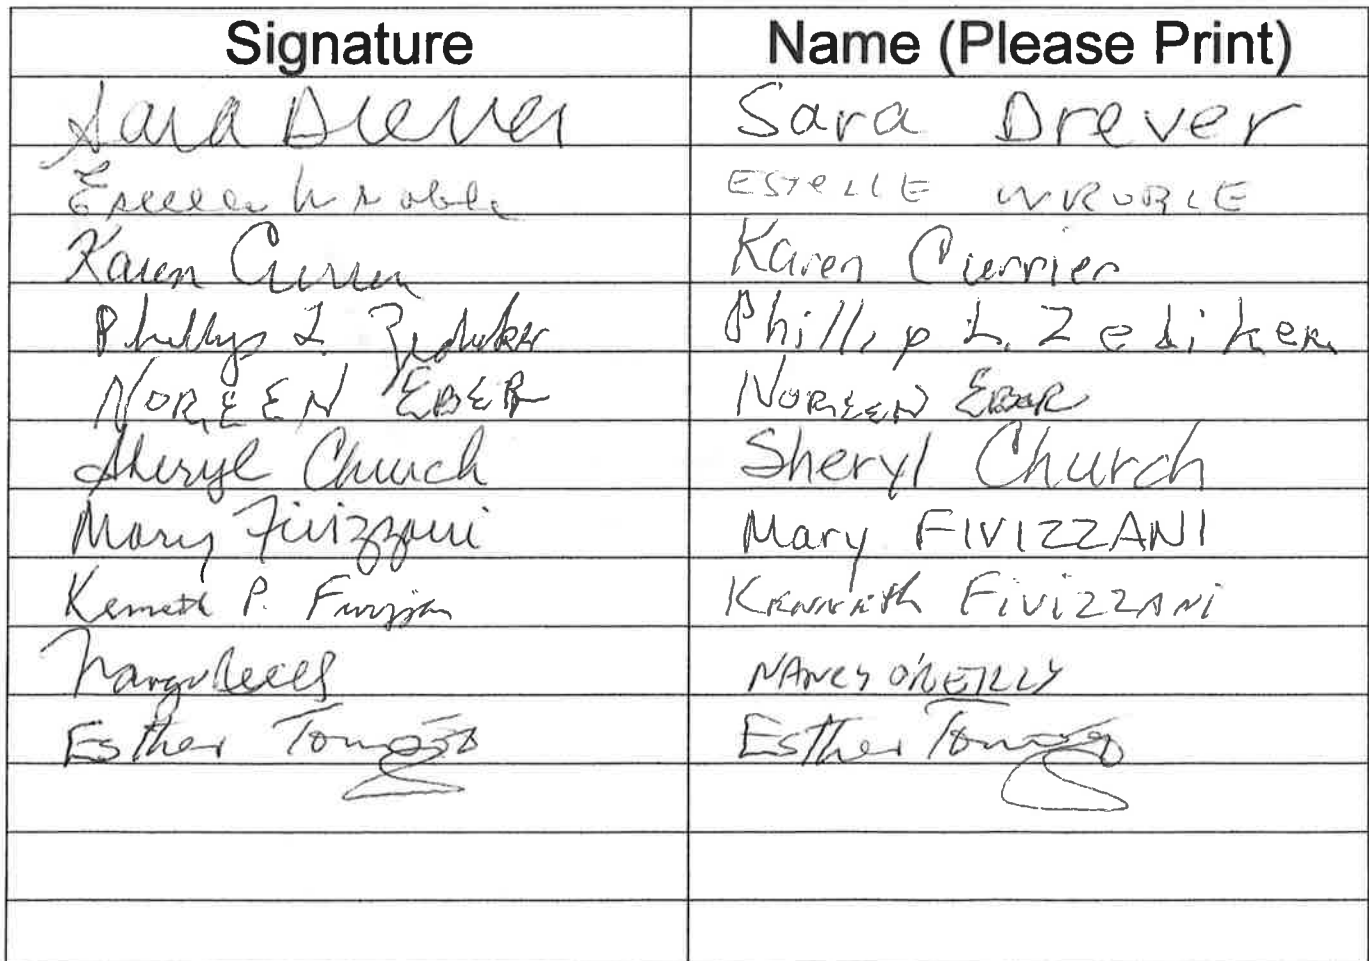 Signature Name (Please Print)
Sara Drever Sara Drever
Estelle Wroble ESTELLE WROBLE
Karen Currier Karen Currier
Phillip L. Zediker Phillip L. Zediker
NOREEN EBER NOREEN EBER
Sheryl Church Sheryl Church
Mary Fivizzani Mary FIVIZZANI
Kenneth P. Fivizzani Kenneth Fivizzani
NANCY O'REILLY
Esther Esther